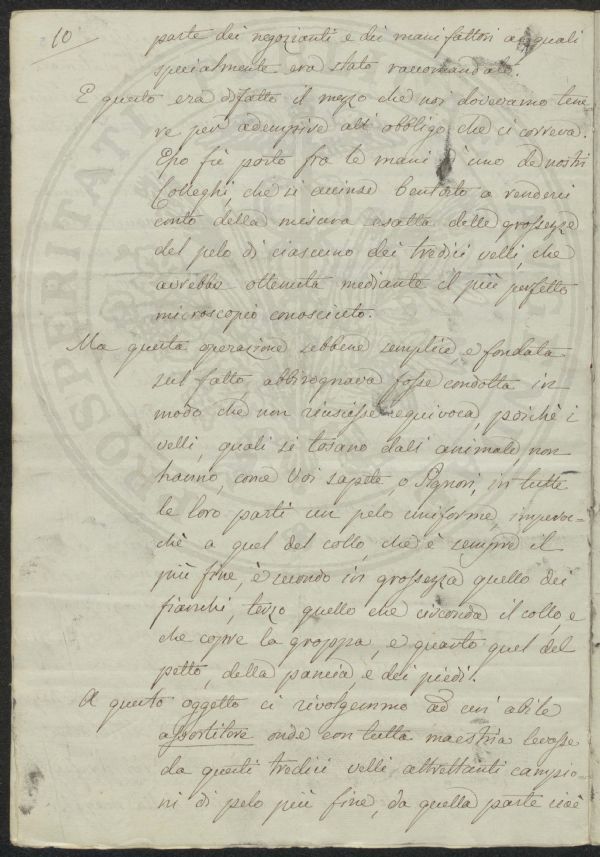 10
parte dei negozianti e dei manifattori ai quali
specialmente era stato raccomandato.
E questo era difatto il mezzo che noi dovevamo tene
re per adempire all'obbligo che ci correva.
Esso fù posto fra le mani d'uno de nostri
Colleghi, che si accinse bentato a renderci
conto della misura esatta delle grossezze
del pelo di ciascuno dei tredici velli, che
avrebbe ottenuta mediante il più perfetto
microscopio conosciuto.
Ma questa operazione sebbene semplice e fondata
sul fatto, abbisognava fosse condotta in
modo che non riuscisse equivoca, poichè i
velli, quali si tosano dall'animale, non
hanno, come Voi sapete, o Signori, in tutte
le loro parti un pelo uniforme, imperoc=
chè a quel del collo, che è sempre il
più fine, è secondo in grossezza quello dei
fianchi, terzo quello che circonda il collo, e
che copre la groppa, e quarto quel del
petto, della pancia, e dei piedi.
A questo oggetto ci rivolgemmo ad un' abile
assortitore onde con tutta maestria levasse
da questi tredici velli, altrettanti campio=
ni di pelo più fine, da quella parte cioè
PROSPERITATI